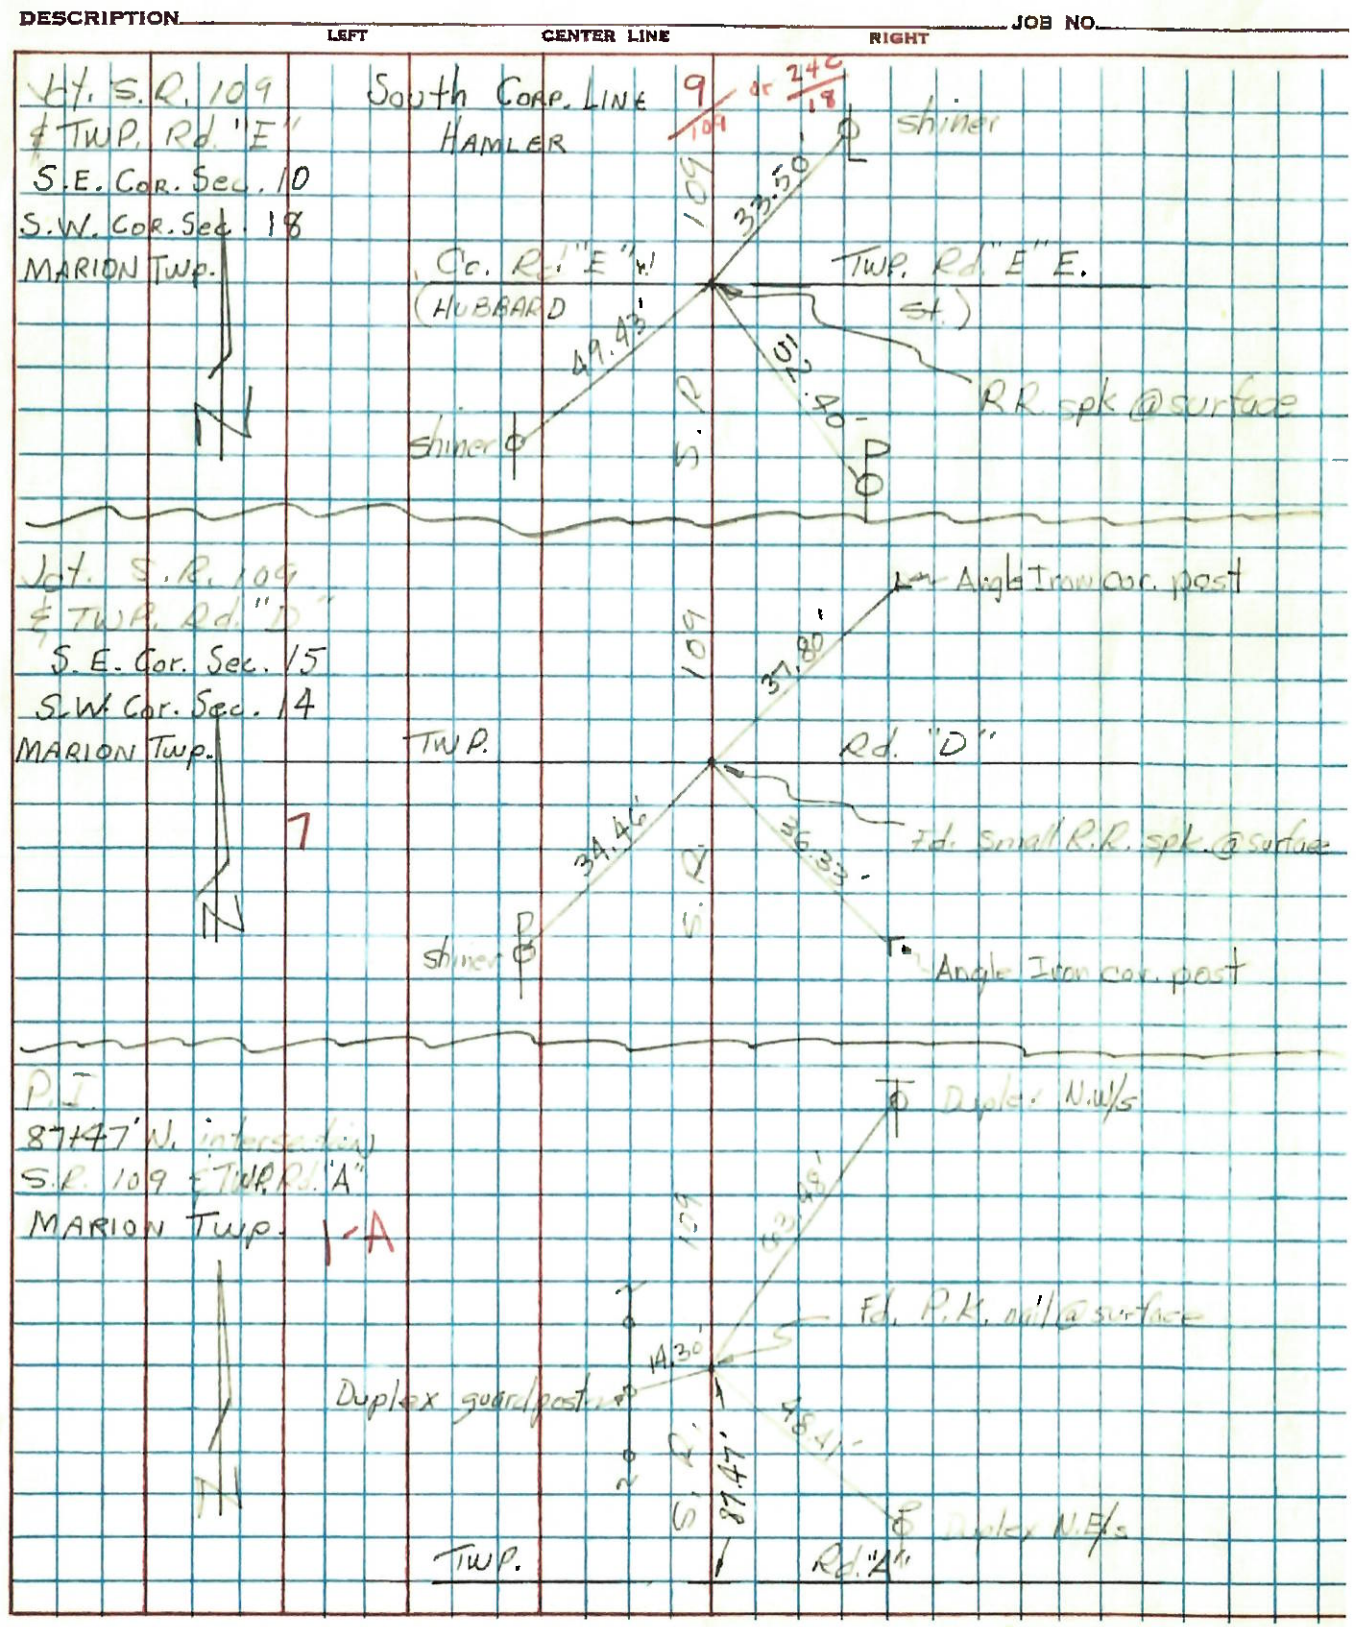 DESCRIPTION JOB NO.
LEFT CENTER LINE RIGHT
Jct. S.R. 109
& TWP. Rd. "E"
S.E. COR. Sec. 10
S.W. COR. Sec. 18
MARION Twp.
South CORP. LINE
HAMLER
9/109 or 24C/18
shiner
109
33.50'
Co. Rd. "E" W
(HUBBARD
TWP. Rd. "E" E.
St.)
49.43'
52.40'
RR. spk @ surface
shiner
S. R.
P
N
Jct. S.R. 109
& TWP. Rd. "D"
S.E. Cor. Sec. 15
S.W. Cor. Sec. 14
MARION Twp.
7
Angle Iron cor. post
109
37.80'
TWP. Rd. "D"
34.46'
36.33'
Fd. small R.R. spk. @ surface
S. R.
P
shiner
Angle Iron cor. post
N
P.I.
87.47' N. intersection
S.R. 109 & TWP. Rd. "A"
MARION Twp.
1-A
Duplex N.W/s
109
63.48'
Fd. P.K. nail @ surface
14.30'
Duplex guardpost
48.41'
S. R.
87.47'
Duplex N.E/s
N
TWP. Rd. "A"